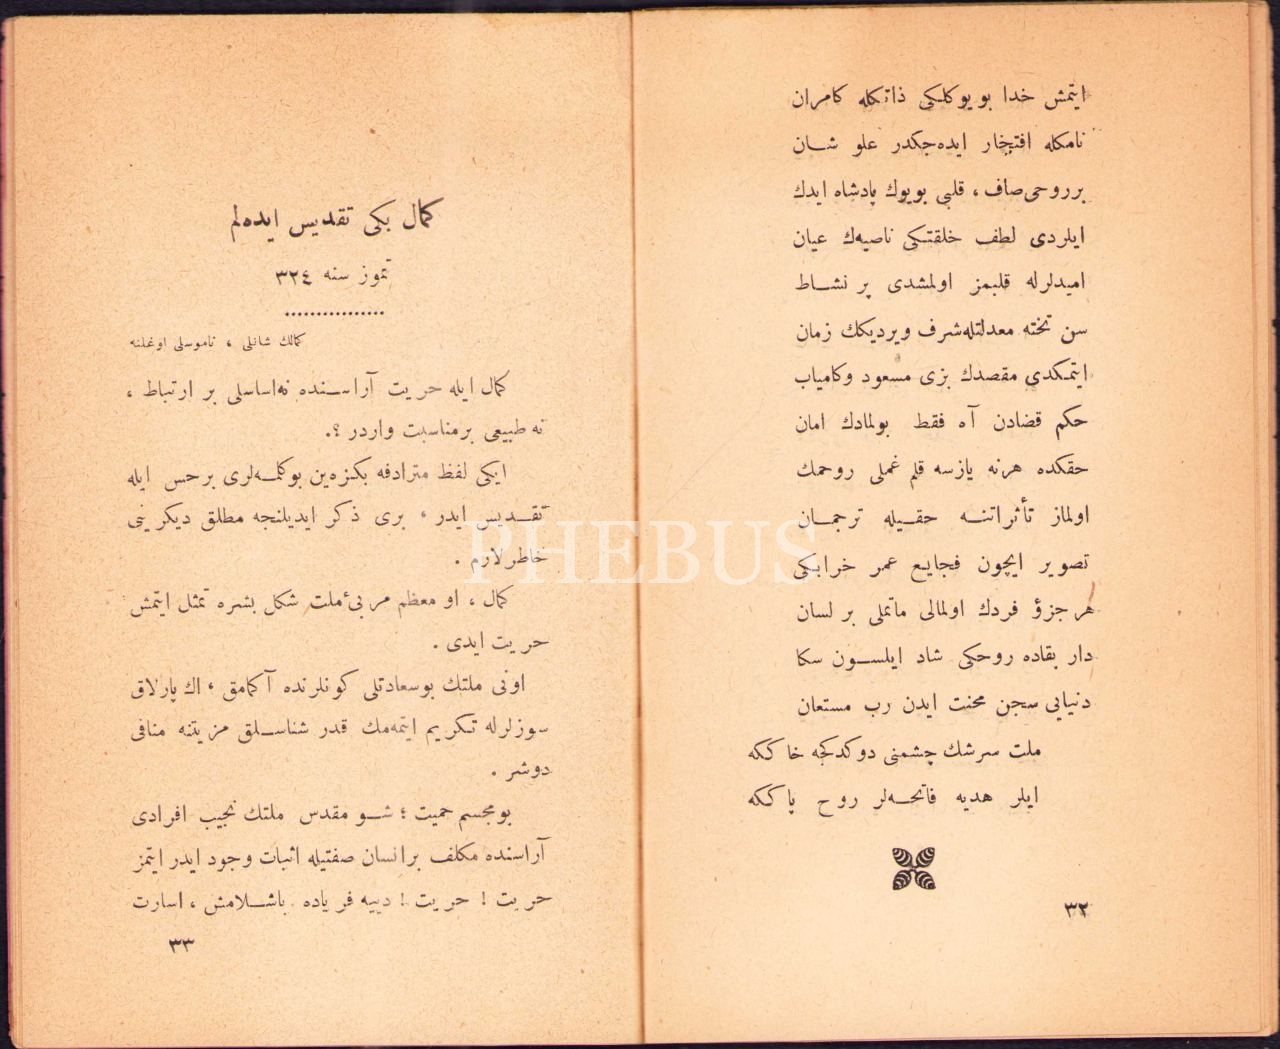 ايتمش خدا بو يوكلكى ذاتكله كامران
نامكله افتخار ايده‌جكدر علو شان
بر روحى صاف ، قلبى بويوك پادشاه ايدك
ايلردى لطف خلقتكى ناصيه‌ك عيان
اميدلرله قلبمز اولمشدى پر نشاط
سن تخته معدلتله شرف ويرديكك زمان
ايتمكدى مقصدك بزى مسعود وكامياب
حكم قضادن آه فقط بولمادك امان
حقكده هرنه يازسه قلم غملى روحمك
اولماز تأثراتنه حقيله ترجمان
تصوير ايچون فجايع عمر خرابكى
هر جزؤ فردك اولمالى ماتملى بر لسان
دار بقاده روحكى شاد ايلسون سكا
دنيايى سجن محنت ايدن رب مستعان
ملت سرشك چشمنى دوكدكجه خاككه
ايلر هديه فاتحه‌لر روح پاككه
٣٢
كمال بكى تقديس ايده‌لم
تموز سنه ٣٢٤
كمالك شانلى ، ناموسلى اوغلنه
كمال ايله حريت آراسنده نه‌اساسلى بر ارتباط ،
نه طبيعى برمناسبت واردر ؟.
ايكى لفظ مترادفه بكزه‌ين بوكلمه‌لرى برحس ايله
تقديس ايدر ، برى ذكر ايديلنجه مطلق ديكرينى
خاطرلارم .
كمال ، او معظم مربىٔ ملت شكل بشره تمثل ايتمش
حريت ايدى .
اونى ملتك بوسعادتلى كونلرنده آكمامق ، اك پارلاق
سوزلرله تكريم ايتمه‌مك قدر شناسلق مزيتنه منافى
دوشر .
بو مجسم حميت ؛ شو مقدس ملتك نجيب افرادى
آراسنده مكلف برانسان صفتيله اثبات وجود ايدر ايتمز
حريت ! حريت ! دييه فرياده باشلامش ، اسارت
٣٣
PHEBUS